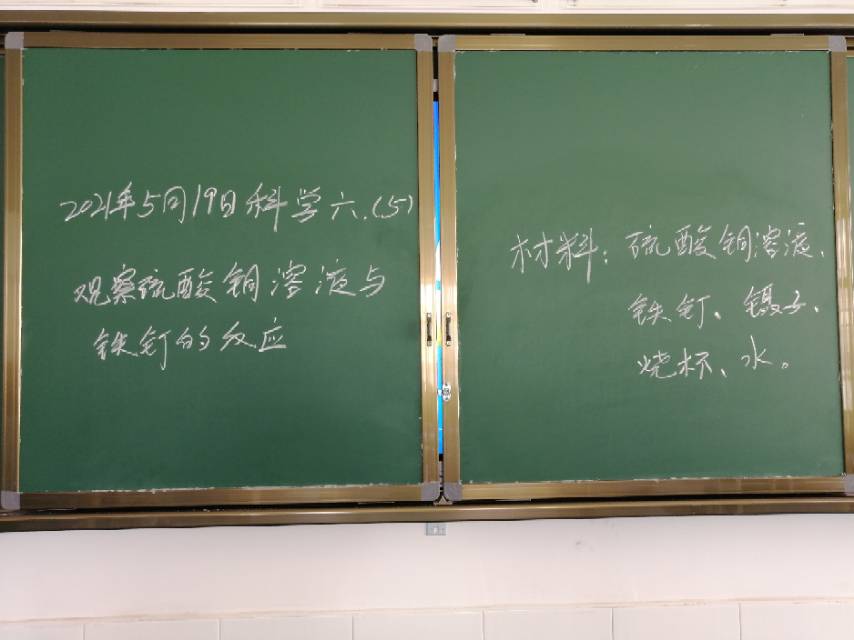 2021年5月19日科学六.(5)
观察硫酸铜溶液与
铁钉的反应
材料：硫酸铜溶液、
铁钉、镊子、
烧杯、水。